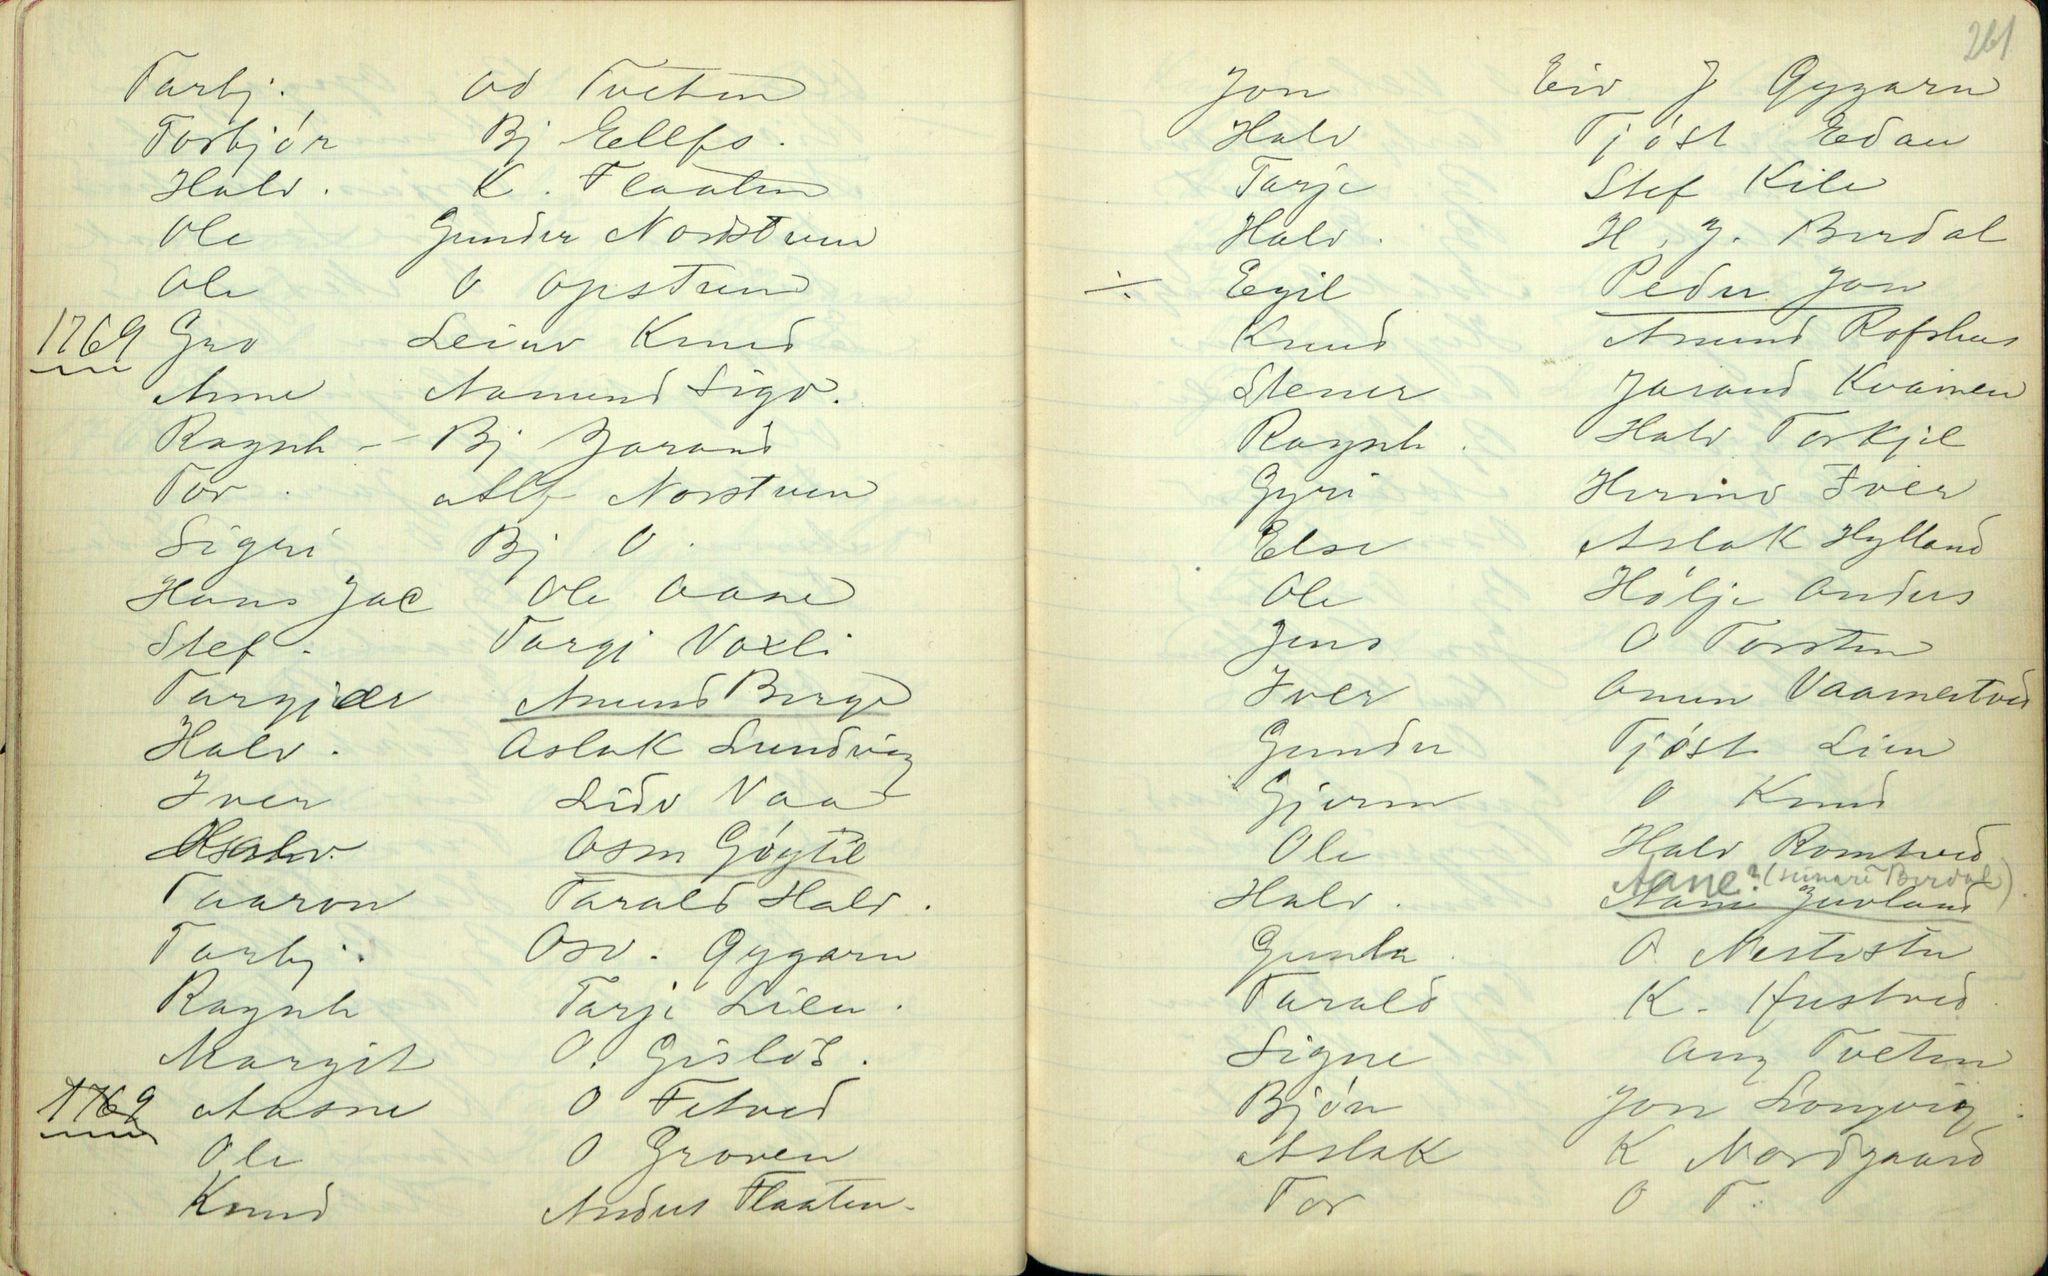 Tarbj. Od Tveten
Torbjór Bj Ellefs.
Halv. K. Flaaten
Ole Gunder Nordstuen
Ole O Opstuen
1769 Gro Leiuv Knud
Anne Aamund Sigv.
Ragnh - Bj Jarand
Tor. Alf Norstuen
Sigri Bj O.
Hans Jac Ole Aase
Stef. Targj Vaxli
Targjær Amund Berge
Halv. Aslak Lundvig
Iver Lidv Vaa
Halv. Osm Góytil
Taaron Tarald Halv.
Tarbj. Osv. Gygarn
Ragnh Tarje Lien.
Margit O. Gisløs.
1769 Aasne O Fetved
Ole O Groven
Knud Anders Flaaten.
261
Jon Eiv J Gygarn
Halv Tjóst Edan
Tarje Stef Kile
Halv. H. J. Berdal
÷ Egil Peder Jon
Knud Amund Rofshus
Stener Jarand Kvamen
Raynh. Halv Torkjil
Gyri Hermo Iver
Else Aslak Hylland
Ole Hólje Anders
Jens O Torsten
Iver Anun Vaamertveit
Gunder Tjóst Lien
Gjerm O Knud
Ole Halv Romtved
Aane? (sunare Berdal)
Halv. Aani Juvland
Gunla. O. Nestestu
Tarald K. Hustved.
Signe Ang Tveten
Bjón Jon Longvig.
Aslak K Nordgaard
Tor O T.